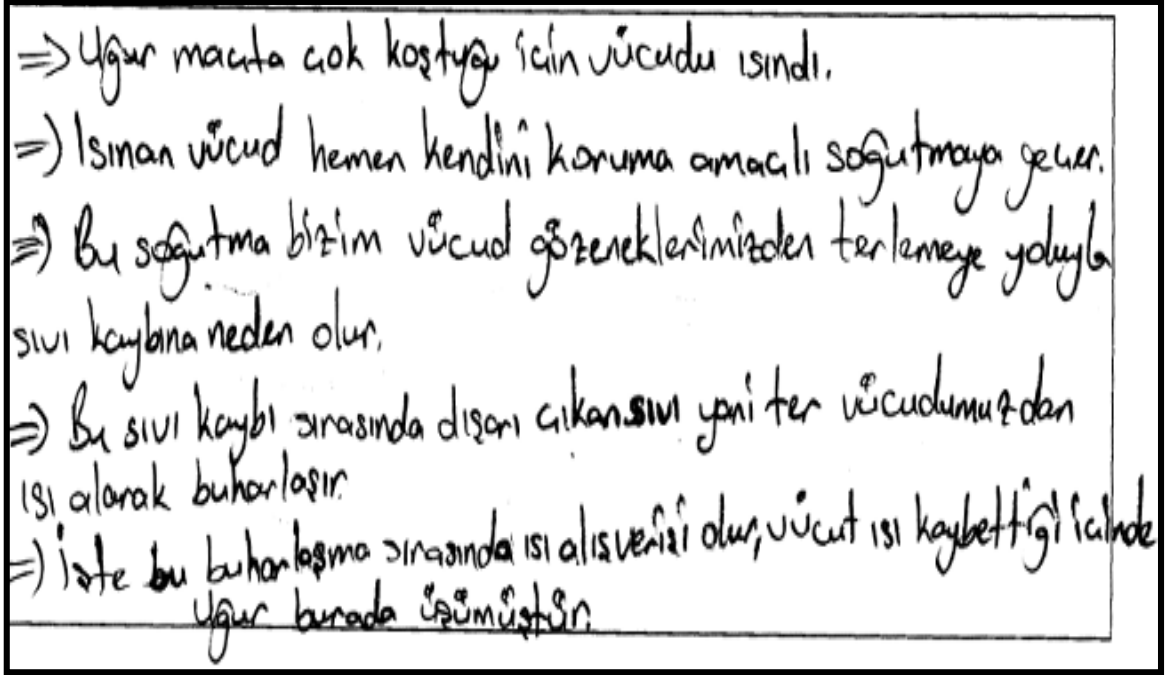 => Uğur maçta çok koştuğu için vücudu ısındı.
=> Isınan vücud hemen kendini koruma amaçlı soğutmaya geçer.
=> Bu soğutma bizim vücud gözeneklerimizden terlemeye yoluyla
sıvı kaybına neden olur.
=> Bu sıvı kaybı sırasında dışarı çıkan sıvı yani ter vücudumuzdan
ısı alarak buharlaşır.
=> İşte bu buharlaşma sırasında ısı alışverişi olur, vücut ısı kaybettiği içinde
Uğur burada üşümüştür.